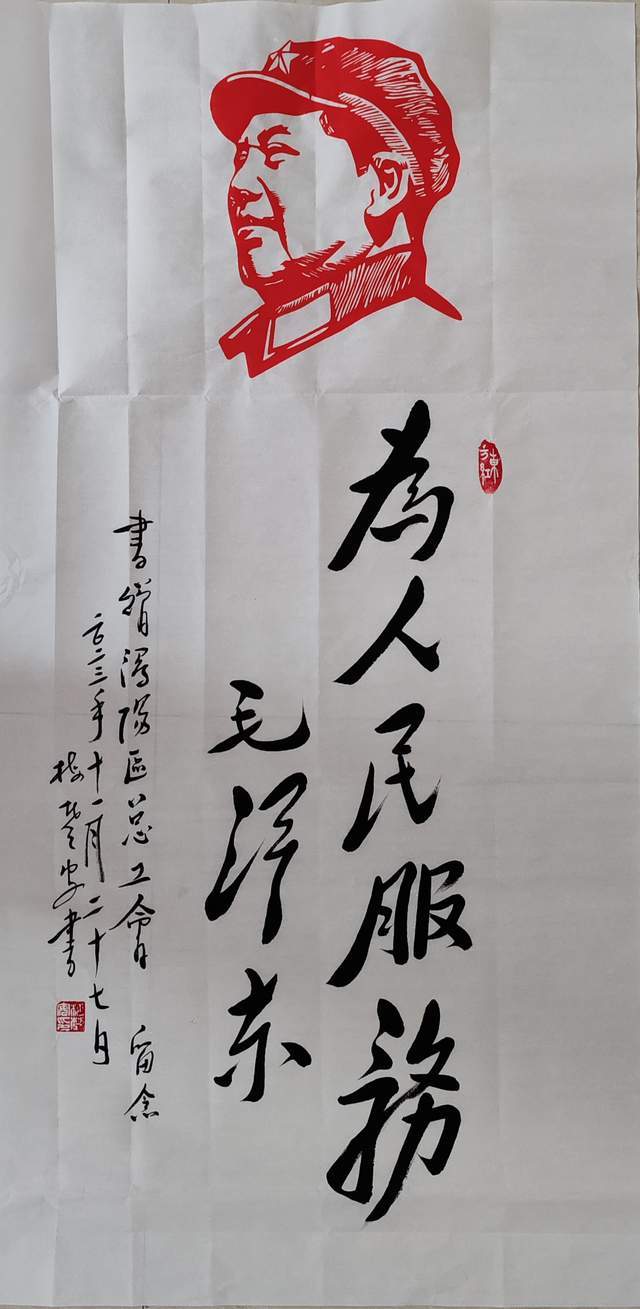 東方紅
為人民服務
毛澤东
書贈潯陽區总工會 留念
二〇二三年十一月二十七日
書